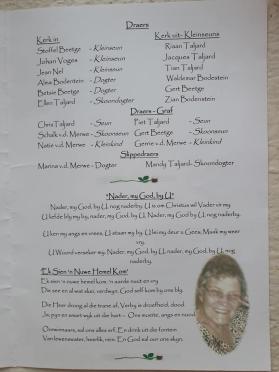 Draers
Kerk in Kerk uit- Kleinseuns
Stoffel Beetge - Kleinseun Riaan Taljard
Johan Voges - Kleinseun Jacques Taljard
Jean Nel - Kleinseun Tian Taljard
Alna Bodentein - Dogter Waldemar Bodestein
Betsie Beetge - Dogter Gert Beetge
Ellen Taljard - Skoondogter Zian Bodenstein
Draers - Graf
Chris Taljard - Seun Piet Taljard - Seun
Schalk v.d. Merwe - Skoonseun Gert Beetge - Skoonseun
Natie v.d. Merwe - Kleinkind Gerrie v.d. Merwe - Kleinkind
Slippedraers
Marina v.d. Merwe - Dogter Mandy Taljard - Skoondogter
"Nader, my God, by U"
Nader, my God, by U, U nog naderby. U is om Christus wil Vader vir my.
U liefde bly my by, nader, my God, by U. Nader, my God, by U, nog naderby.
U ken my angs en vrees, U staar my by. U lei my deur u Gees, Maak my weer
vry.
U Woord verseker my: Nader, my God, by U, nader, my God, by U, nog
naderby.
'Ek Sien 'n Nuwe Hemel Kom'
Ek sien 'n nuwe hemel kom, 'n aarde nuut en vry
Die see en al wat skei, verdwyn: God self kom by ons bly.
Die Heer droog al die trane af, Verby is droefheid, dood.
Ja, pyn en smart wyk uit die hart - Ons muerte, angs en nood
Oorwinnaars, sal ons alles erf: En drink uit die fontein
Van lewenswater, heerlik, rein: En God sal oor ons skyn.